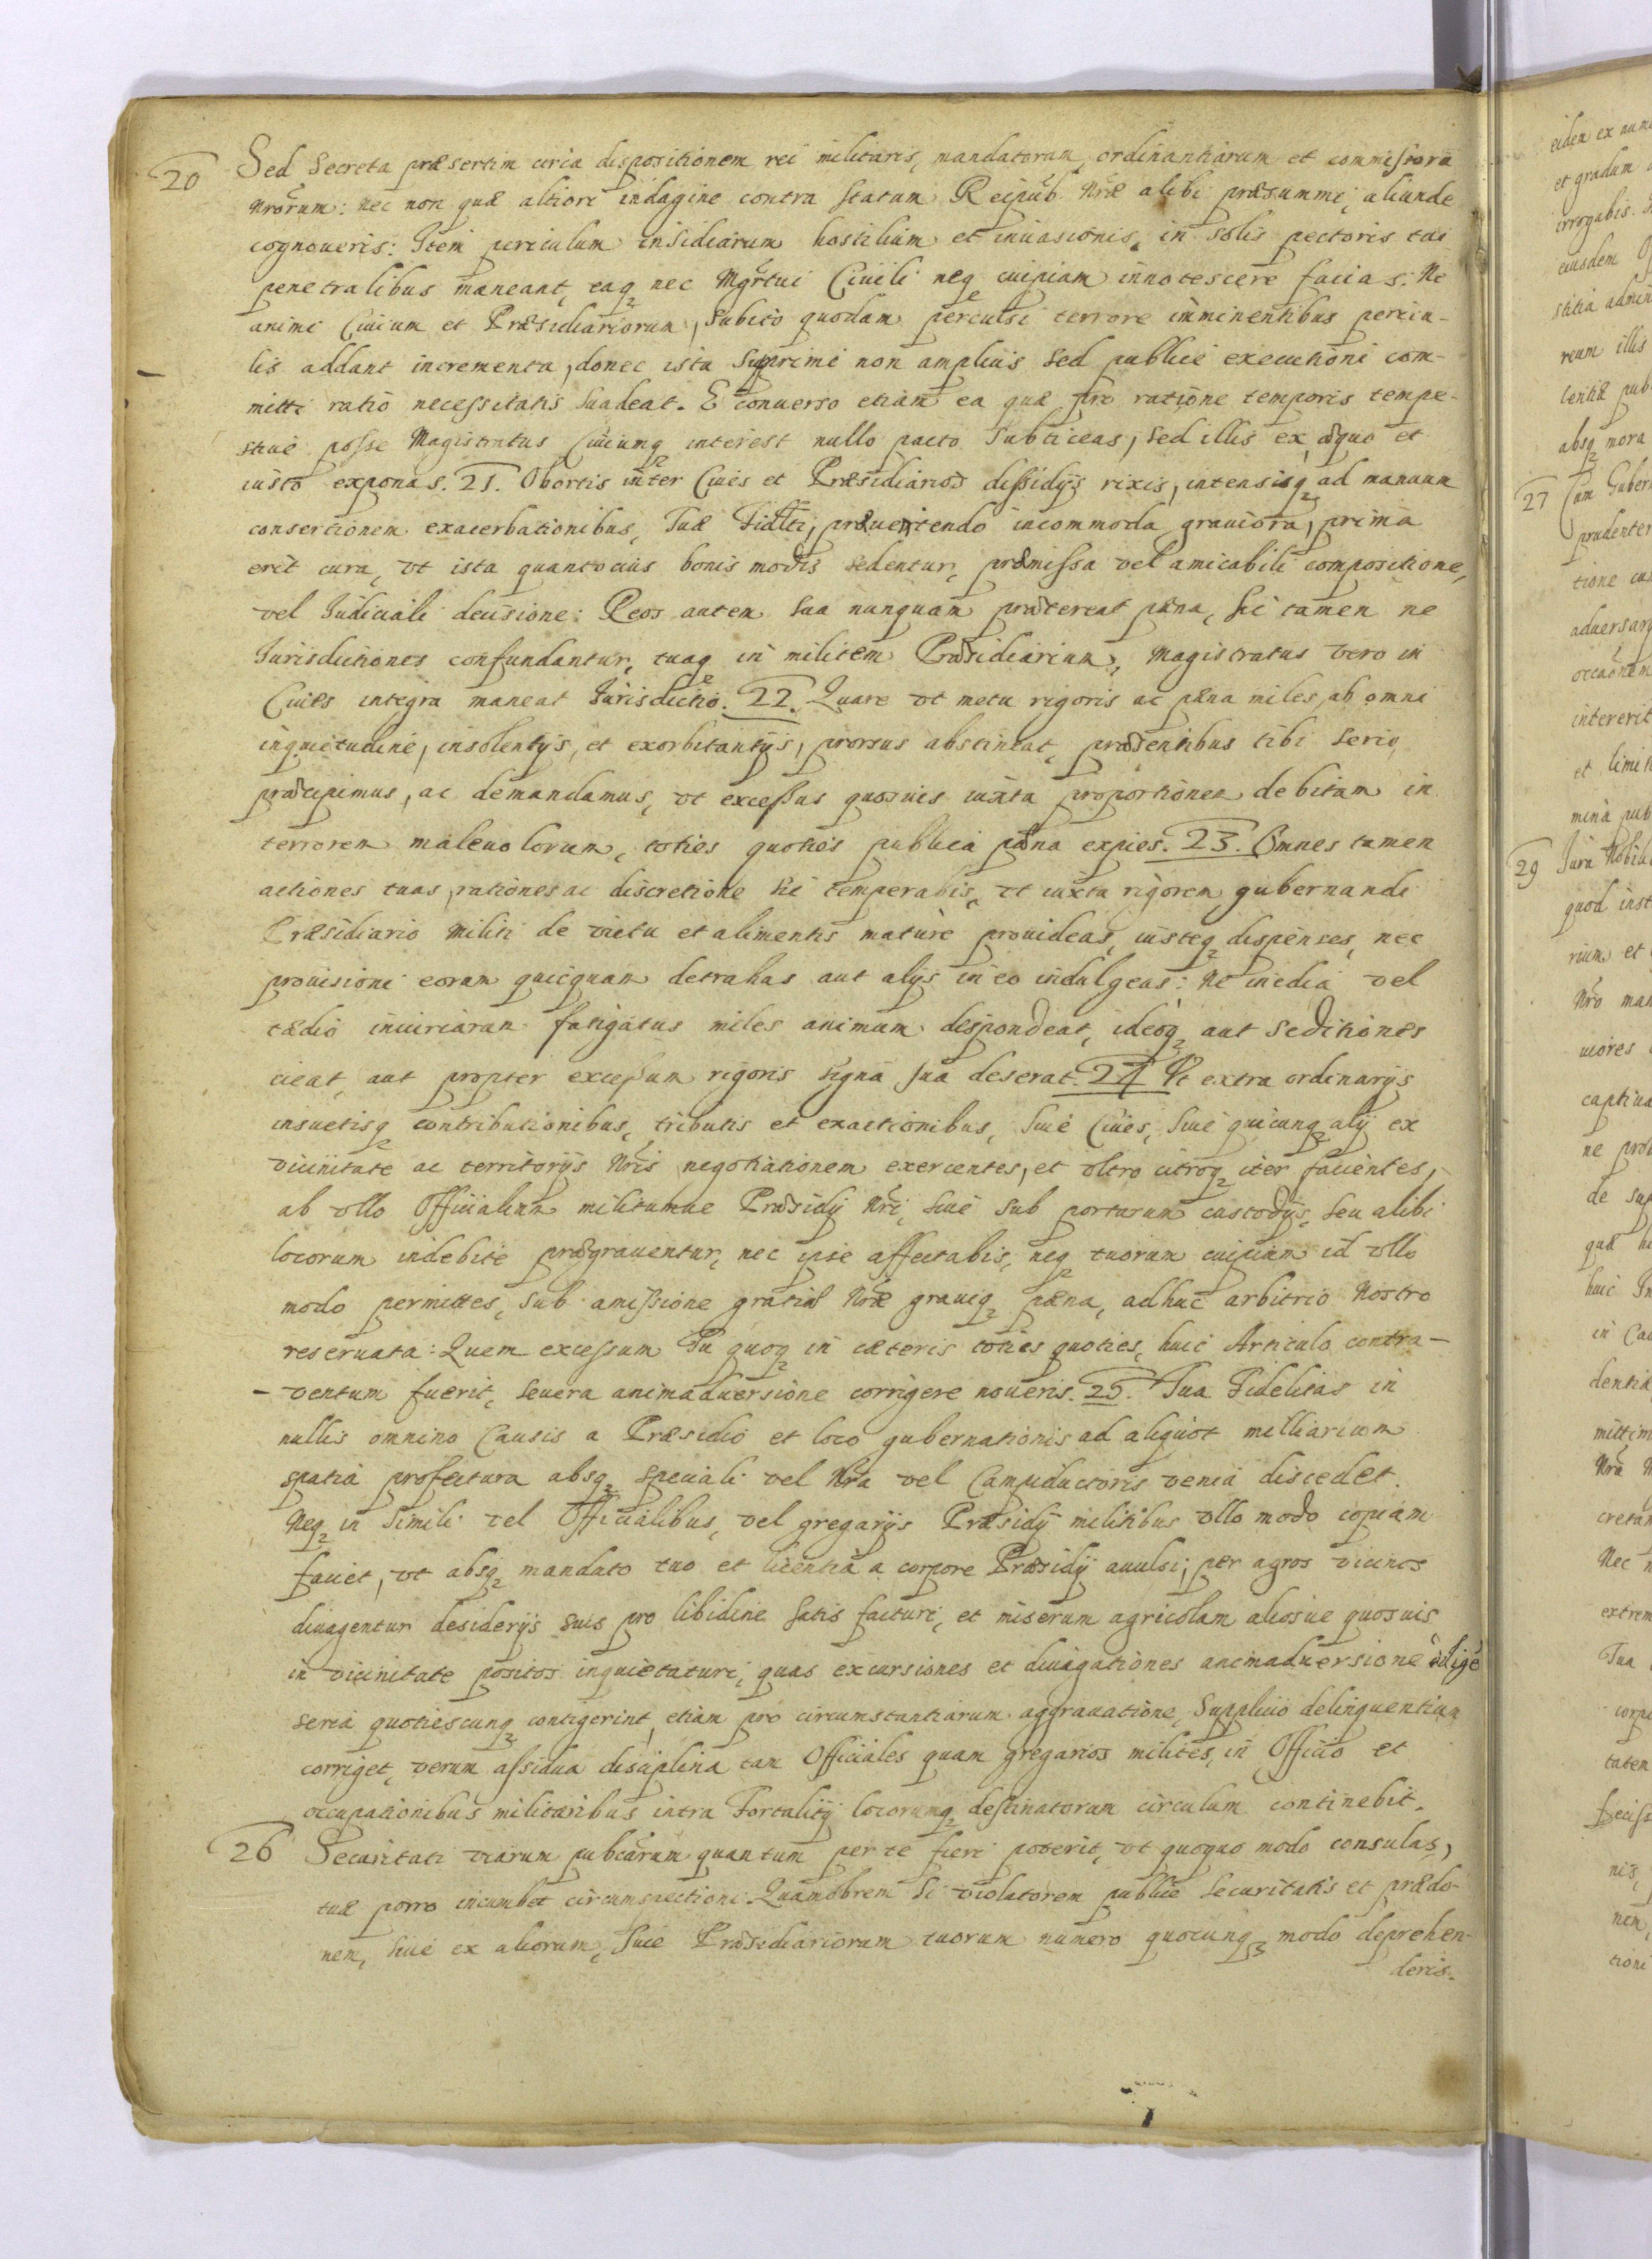 20 Sed Secreta præsertim circa dispositionem rei militaris, mandatorum, ordinantiarum et commissiorū
Nrorum: nec non quæ altiori indagine contra statum Reipub. Nræ alibi præsummi, aliunde
cognoueris: Item periculum insidiarum hostilium et inuasionis, in solis pectoris tui
penetralibus maneant, eaq nec Mgrtui Ciuili neq cuipiam innotescere facias: Ne
animi Ciuium et Præsidiariorum, subito quodam perculsi terrore imminentibus pericu-
lis addant incrementa, donec ista supprimi non amplius sed publicè executioni com-
mitti ratio necessitatis suadeat. E conuerso etiam ea quæ pro ratione temporis tempe-
stiuè posse Magistratus Ciuiumq interest nullo pacto subticeas, sed illis ex æquo et
iusto exponas. 21. Obortis inter Ciues et Præsidiarios dissidÿs rixis, intensisq ad manuum
consertionem exacerbationibus, Tuæ Fidltti, præuertendo incommoda grauiora, prima
erit cura, vt ista quantocius bonis modis sedentur, præmissa vel amicabili compositione,
vel Iudiciali decisione: Reos autem sua nunquam prætereat pæna, sic tamen ne
Iurisdictiones confundantur, tuaq in militem Præsidiarium, Magistratus vero in
Ciues integra maneat Iurisdictio. 22. Quare vt metu rigoris ac pæna miles, ab omni
inquietudine, insolentÿs, et exorbitantÿs, prorsus abstineat, præsentibus tibi serio
præcipimus, ac demandamus, vt excessus quosuis iuxta proportionem debitam in
terrorem maleuolorum, toties quoties publica pæna expies. 23. Omnes tamen
actiones tuas, rationes ac discretione sic temperabis, vt iuxta rigorem gubernandi
Præsidiario Militi de victu et alimentis mature prouideas, iusteq dispenses, nec
prouisioni eorum quicquam detrahas aut alÿs in eo indulgeas: Ne inedia vel
tædio iniuriarum fatigatus miles animum despondeat, ideoq aut seditiones
cieat, aut propter excessum rigoris signa sua deserat. 24 Vt extra ordinarÿs
insuetisq contributionibus, tributis et exactionibus, siue Ciues, siue quicunq alÿ ex
vicinitate ac territorÿs Nris negotiationem exercentes, et vltro citroq iter facientes,
ab vllo Officialium militumue Præsidÿ Nri, siue sub portarum custodÿs, seu alibi
locorum indebite prægrauentur, nec ipse affectabis, neq tuorum cuipiam id vllo
modo permittes, sub amissione gratiæ Nræ grauiq pæna, adhuc arbitrio Nostro
reseruata: Quem excessum Tu quoq in cæteris toties quoties, huic Articulo contra-
-ventum fuerit, seuera animaduersione corrigere noueris. 25. Tua Fidelitas in
nullis omnino Causis a Præsidio et loco gubernationis ad aliquot milliarium
spatia profectura absq speciali vel Nra vel Campiductoris venia discedet.
Neq in simili vel Officialibus, vel gregarÿs Præsidÿ militibus vllo modo copiam
faciet, vt absq mandato tuo et licentia a corpore Præsidÿ auulsi, per agros vicinos
diuagentur desiderÿs suis pro libidine satis facturi, et miserum agricolam aliosue quosuis
in vicinitate positos inquietaturi, quas excursiones et diuagationes animaduersione
seria quotiescunq contigerint, etiam pro circumstantiarum aggrauatione, supplicio delinquentium
corriget, verum assidua disciplina tam Officiales quam gregarios milites, in Officio et
occupationibus militaribus intra Fortalitÿ locorumq destinatorum circulum continebit.
26 Securitati viarum pubcarum quantum per te fieri poterit, vt quoquo modo consulas,
tuæ porro incumbet circumspectioni. Quamobrem si violatorem publicæ securitatis et prædo-
nem, siue ex aliorum, siue Præsidiariorum tuorum numero quocunq modo deprehen-
deris.
27
29